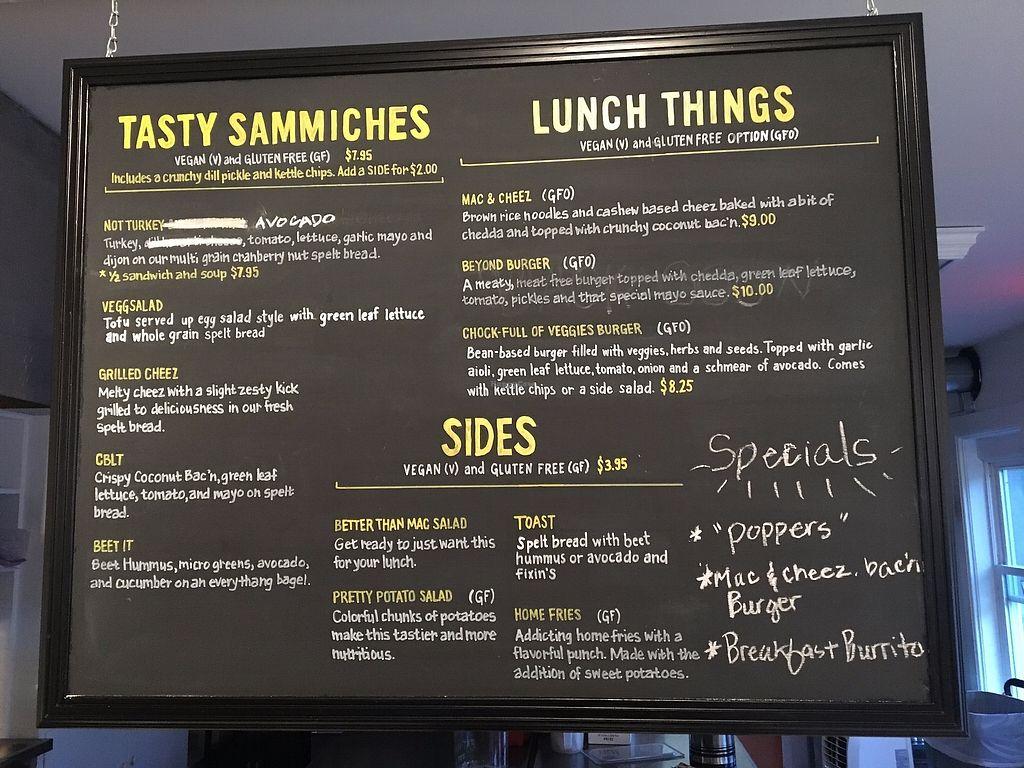 TASTY SAMMICHES
VEGAN (V) and GLUTEN FREE (GF) $7.95
Includes a crunchy dill pickle and kettle chips. Add a SIDE for $2.00
NOT TURKEY AVOCADO
Turkey, tomato, lettuce, garlic mayo and
dijon on our multi grain cranberry nut spelt bread.
* ½ sandwich and soup $7.95
VEGGSALAD
Tofu served up egg salad style with green leaf lettuce
and whole grain spelt bread
GRILLED CHEEZ
Melty cheez with a slight zesty kick
grilled to deliciousness in our fresh
spelt bread.
CBLT
Crispy Coconut Bac'n, green leaf
lettuce, tomato, and mayo on spelt
bread.
BEET IT
Beet Hummus, micro greens, avocado,
and cucumber on an everythang bagel.
LUNCH THINGS
VEGAN (V) and GLUTEN FREE OPTION (GFO)
MAC & CHEEZ (GFO)
Brown rice noodles and cashew based cheez baked with a bit of
chedda and topped with crunchy coconut bac'n. $9.00
BEYOND BURGER (GFO)
A meaty, meat free burger topped with chedda, green leaf lettuce,
tomato, pickles and that special mayo sauce. $10.00
CHOCK-FULL OF VEGGIES BURGER (GFO)
Bean-based burger filled with veggies, herbs and seeds. Topped with garlic
aioli, green leaf lettuce, tomato, onion and a schmear of avocado. Comes
with kettle chips or a side salad. $8.25
SIDES
VEGAN (V) and GLUTEN FREE (GF) $3.95
BETTER THAN MAC SALAD
Get ready to just want this
for your lunch.
PRETTY POTATO SALAD (GF)
Colorful chunks of potatoes
make this tastier and more
nutritious.
TOAST
Spelt bread with beet
hummus or avocado and
fixin's
HOME FRIES (GF)
Addicting homefries with a
flavorful punch. Made with the
addition of sweet potatoes.
-Specials-
* "poppers"
*Mac & cheez. bac'n
Burger
*Breakfast Burrito